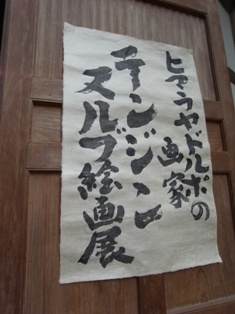 ヒマラヤドルポの
画家
テンジン
ヌルブ絵画展